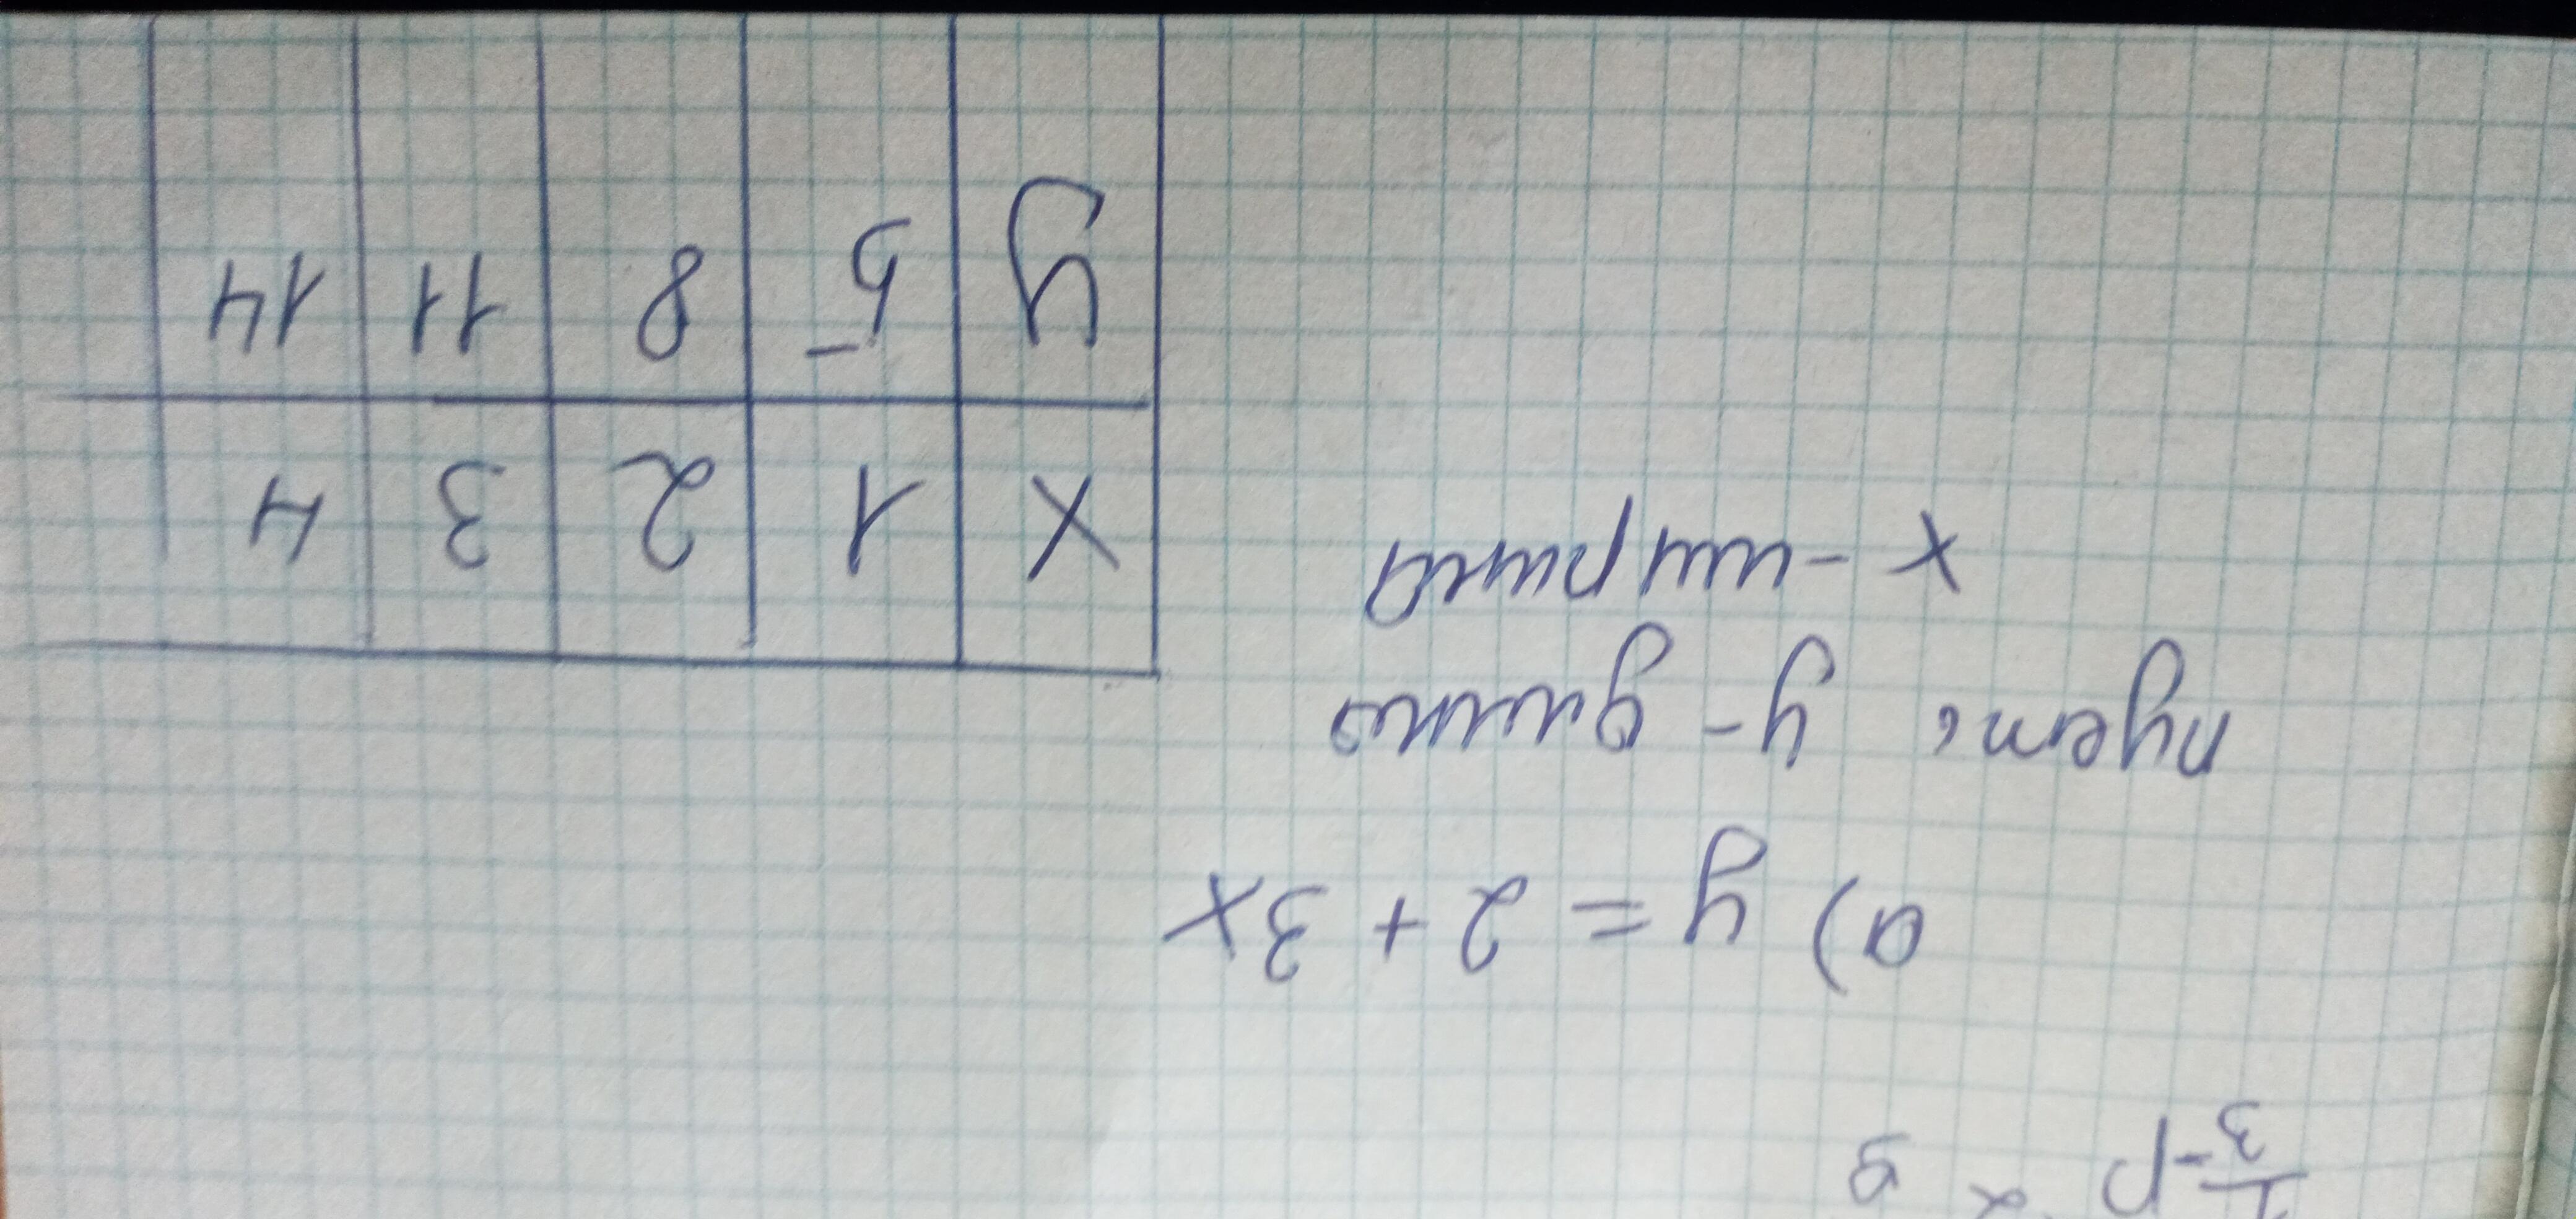 1/3 - p x 5
а) y = 2 + 3x
пусть y - длина
x - ширина
x 1 2 3 4
y 5 8 11 14